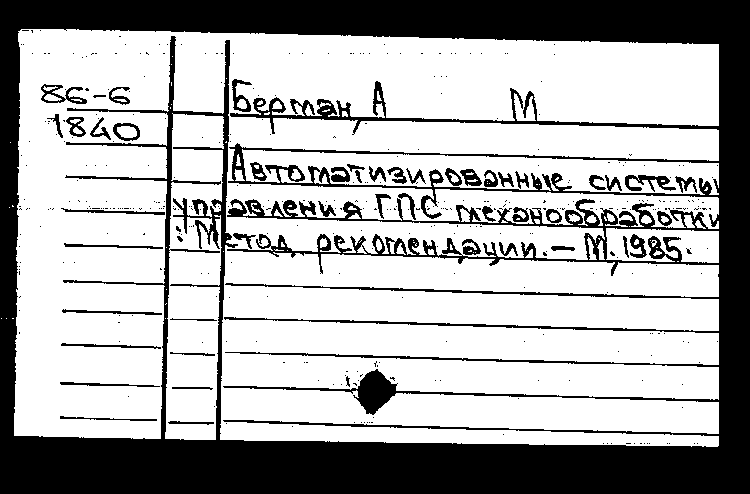 86-6
1840
Берман, А М
Автоматизированные системы
управления ГПС механообработки
: Метод. рекомендации. — М., 1985.